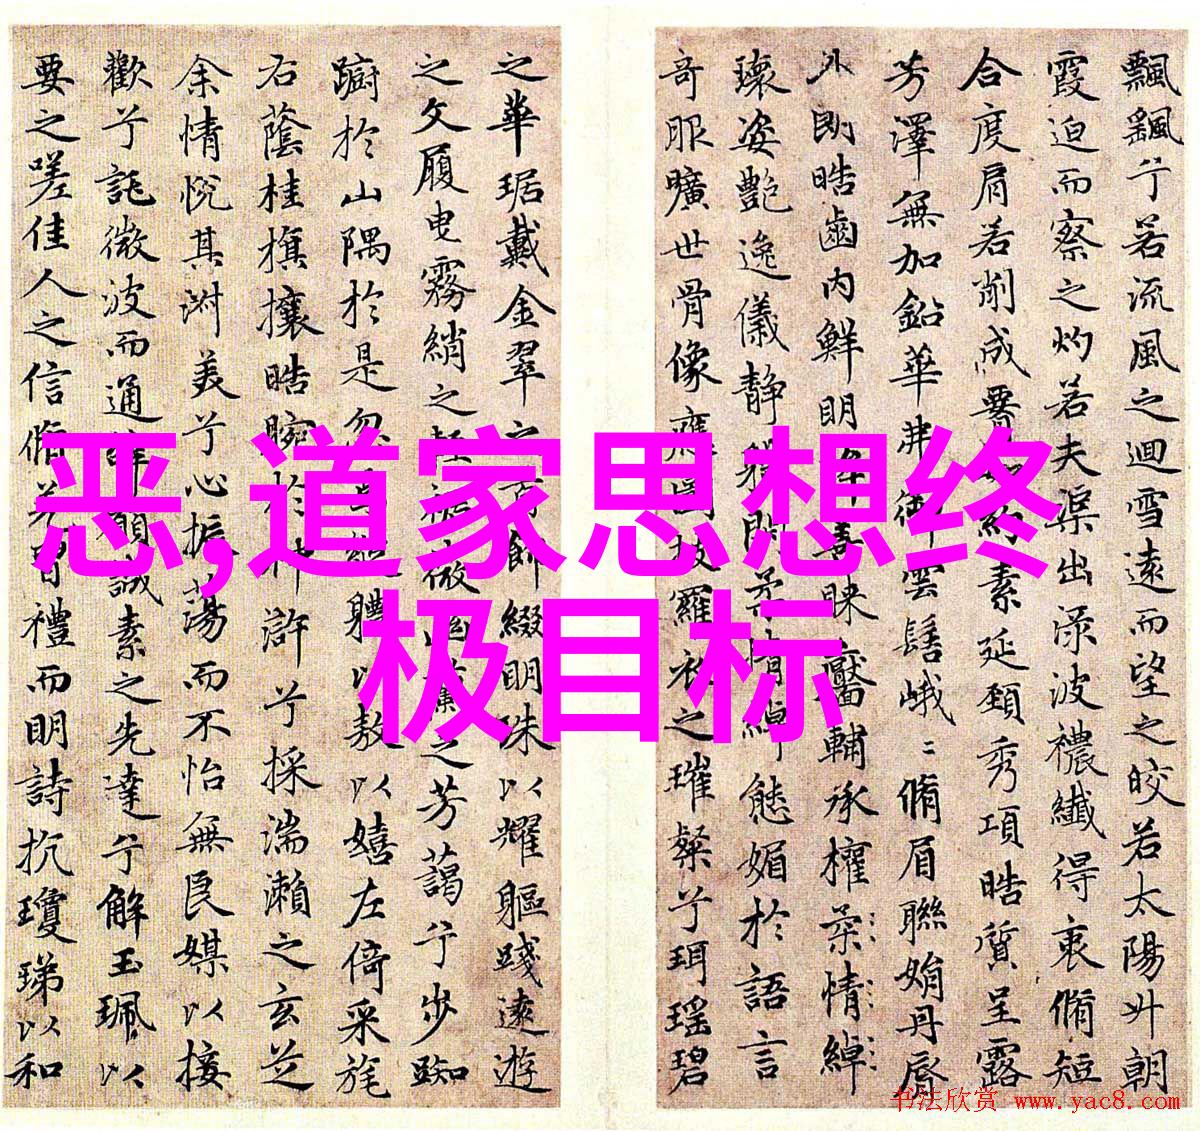 飄颻兮若流風之迴雪遠而望之皎若太陽升朝
霞迫而察之灼若夫渠出渌波襛纖得衷脩短
合度肩若削成約素延頸秀項皓質呈露
芳澤無加鉛華弗御雲髻峨〻脩眉聯娟丹脣
外朗皓齒内鮮明眸善睞靨輔承權柔情綽
瓌姿艶逸儀静體閑柔情綽態媚於語言
奇服曠世骨像應圖披羅衣之璀粲兮珥瑤碧
之華琚戴金翠之首飾綴明珠以耀軀踐遠遊
之文履曳霧綃之輕裾微幽之芳藹兮步踟
躕於山隅於是忽焉縱體以敖以嬉左倚采旄
右蔭桂旗攘皓腕於滸兮採湍瀨之玄芝
余情悅其淑美兮心振蕩而不怡無良媒以接
歡兮託微波而通辭願誠素之先達兮解玉珮以
要之嗟佳人之信脩羌習禮而明詩抗瓊珶以和
恶,道家思想终
极目标
书法欣赏 www.yac8.com